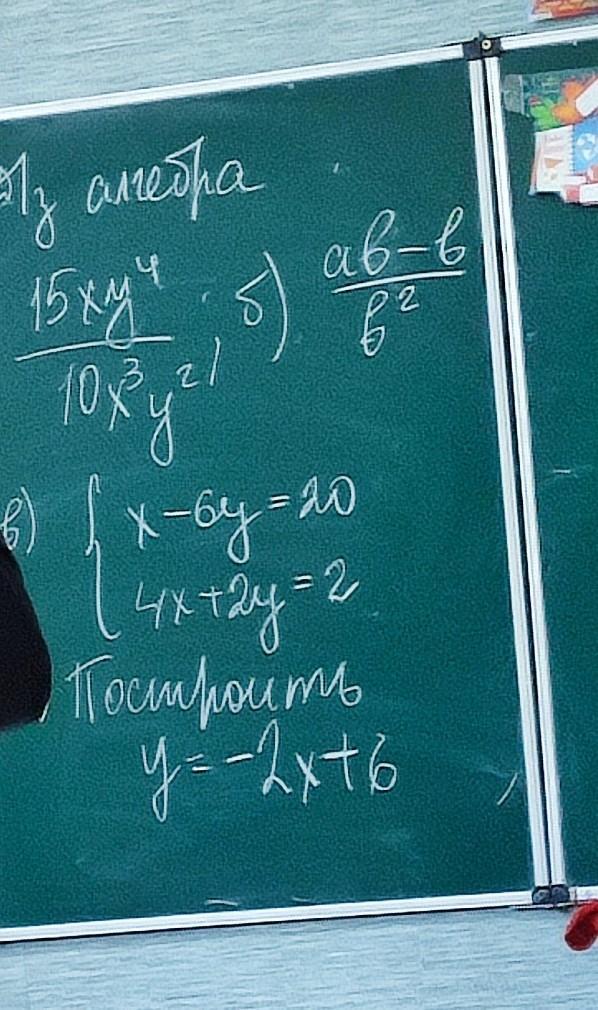 Дз алгебра
15xy⁴/10x³y², б) ab-b/b²
в) { x-6y=20
4x+2y=2
Построить
y=-2x+6